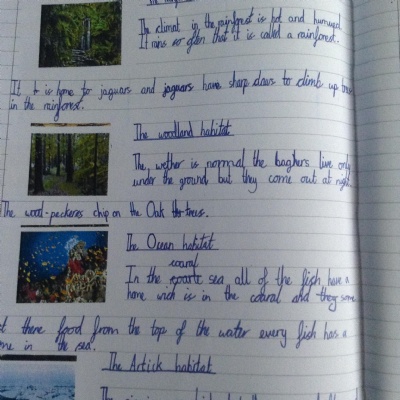 The climat in the rainforest is hot and humund.
It rains so often that it is called a rainforest.
It is home to jaguars and jaguars have sharp claws to climb up trees
in the rainforest.
The woodland habitat
The wether is normal the baghers live only
under the ground but they come out at night.
The wood-peckeres chip on the Oak trees.
The Ocean habitat
coaral
In the sea all of the fish have a
home wich is in the coaral and they some
there food from the top of the water every fish has a
in the sea.
The Artick habitat